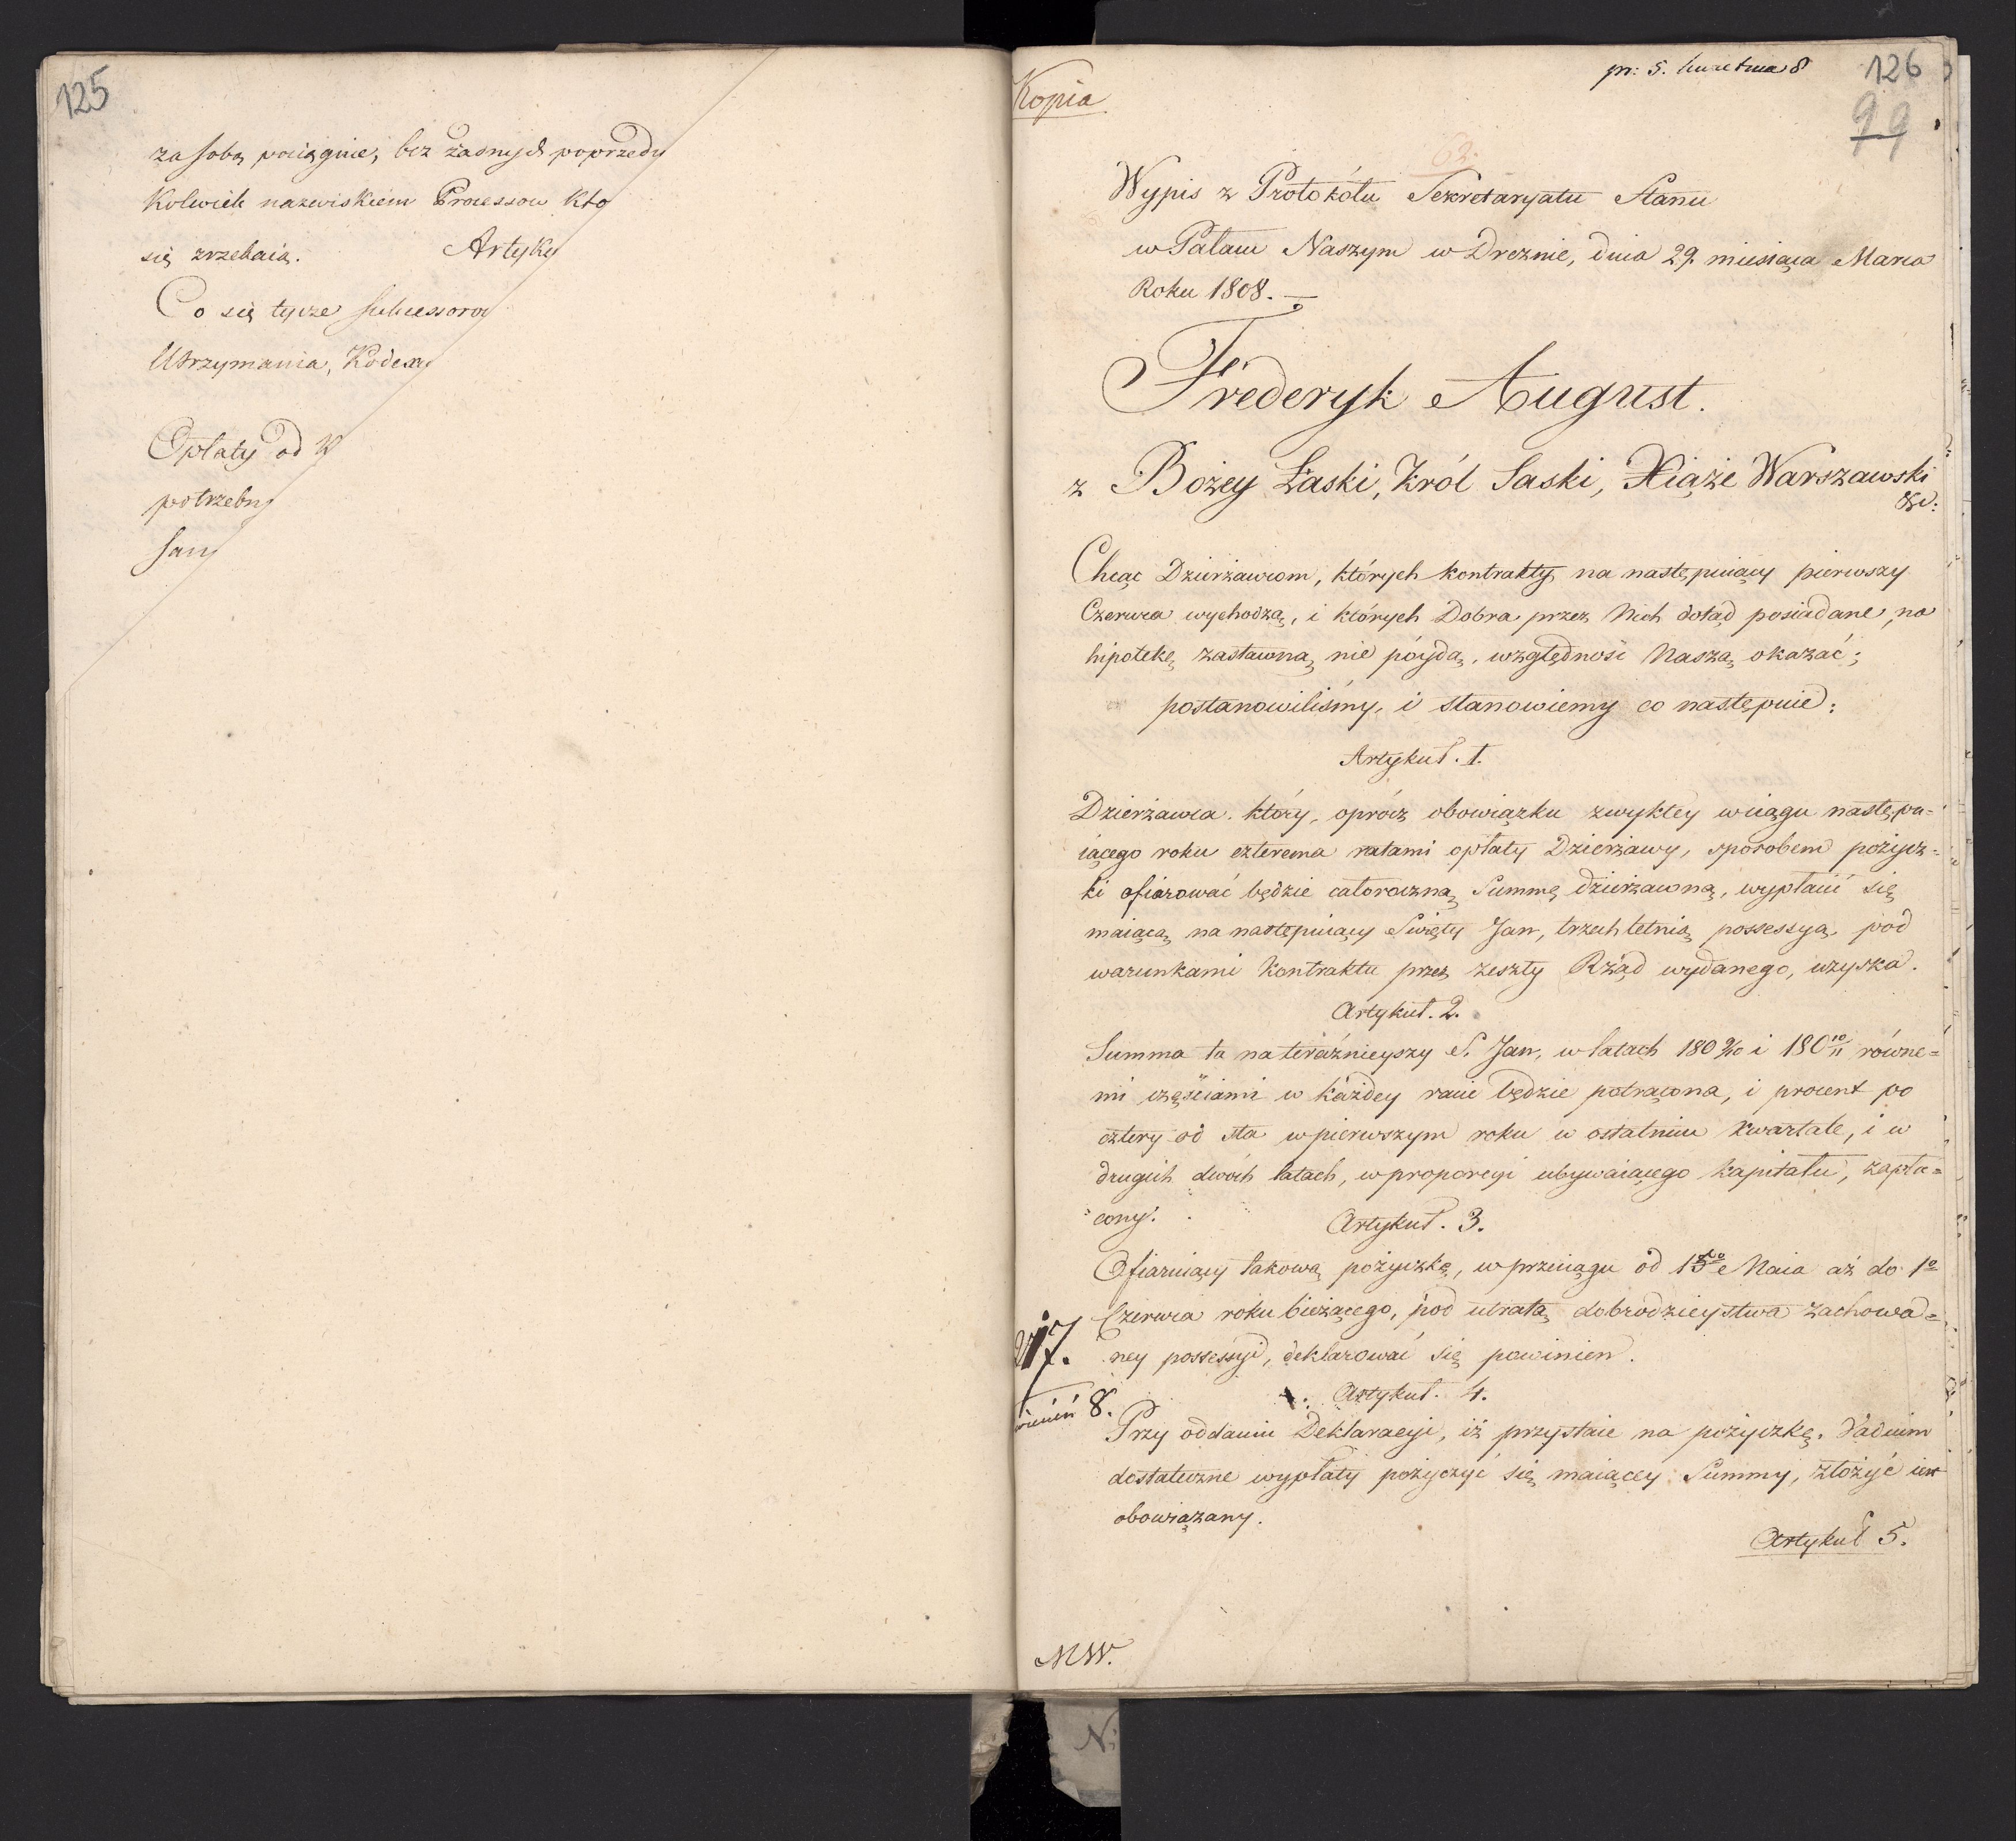 125
za sobą pociągnie, bez żadnych poprzedn
Kolwiek nazwiskiem Processow kto
się zrzekaią. Artyku
Co się tycze Sukcessorow
Utrzymania, Kodexu
Opłaty od
potrzebn
Sam
pr: 5. kwietnia 8
126
99
Kopia
62.
Wypis z Protokółu Sekretaryatu Stanu
w Pałacu Naszym w Dreznie, dnia 29. miesiąca Marca
Roku 1808.
Frederyk August.
z Bożey Łaski, Król Saski, Xiąże Warszawski
&c:
Chcąc Dzierżawcom, których kontrakty na następuiący pierwszy
Czerwca wychodzą, i których Dobra przez Nich dotąd posiadane, na
hipotekę zastawną nie póydą, względność Naszą okazać;
postanowiliśmy, i stanowiemy co następuie:
Artykuł. 1.
Dzierżawca, który, oprócz obowiązku zwykłey w ciągu następu=
iącego roku czterema ratami opłaty Dzierżawy, sposobem pożycz=
ki ofiarować będzie całoroczną Summę dzierżawną, wypłacić się
maiącą na następuiący Święty Jan, trzechletnią possessyą pod
warunkami kontraktu przez zeszły Rząd wydanego, uzyska.
Artykuł. 2.
Summa ta na teraźnieyszy S. Jan, w latach 180 9/10 i 18 10/11 równe=
mi częściami w każdey racie będzie potrącona, i procent po
cztery od sta w pierwszym roku w ostatnim kwartale, i w
drugich dwóch latach, w proporcyi ubywaiącego kapitału, zapła=
cony.
Artykuł. 3.
Ofiaruiący takową pożyczkę, w przeciągu od 15go Maia aż do 1o
Czerwca roku bieżącego, pod utratą dobrodzieystwa zachowa=
ney possessyi, deklarować się powinien.
17.
8.
Artykuł. 4.
Przy oddaniu Deklaracyi, iż przystaie na pożyczkę, Vadium
dostateczne wypłaty pożyczyć się maiącey Summy, złożyć iest
obowiązany.
Artykuł 5.
MW.
N: